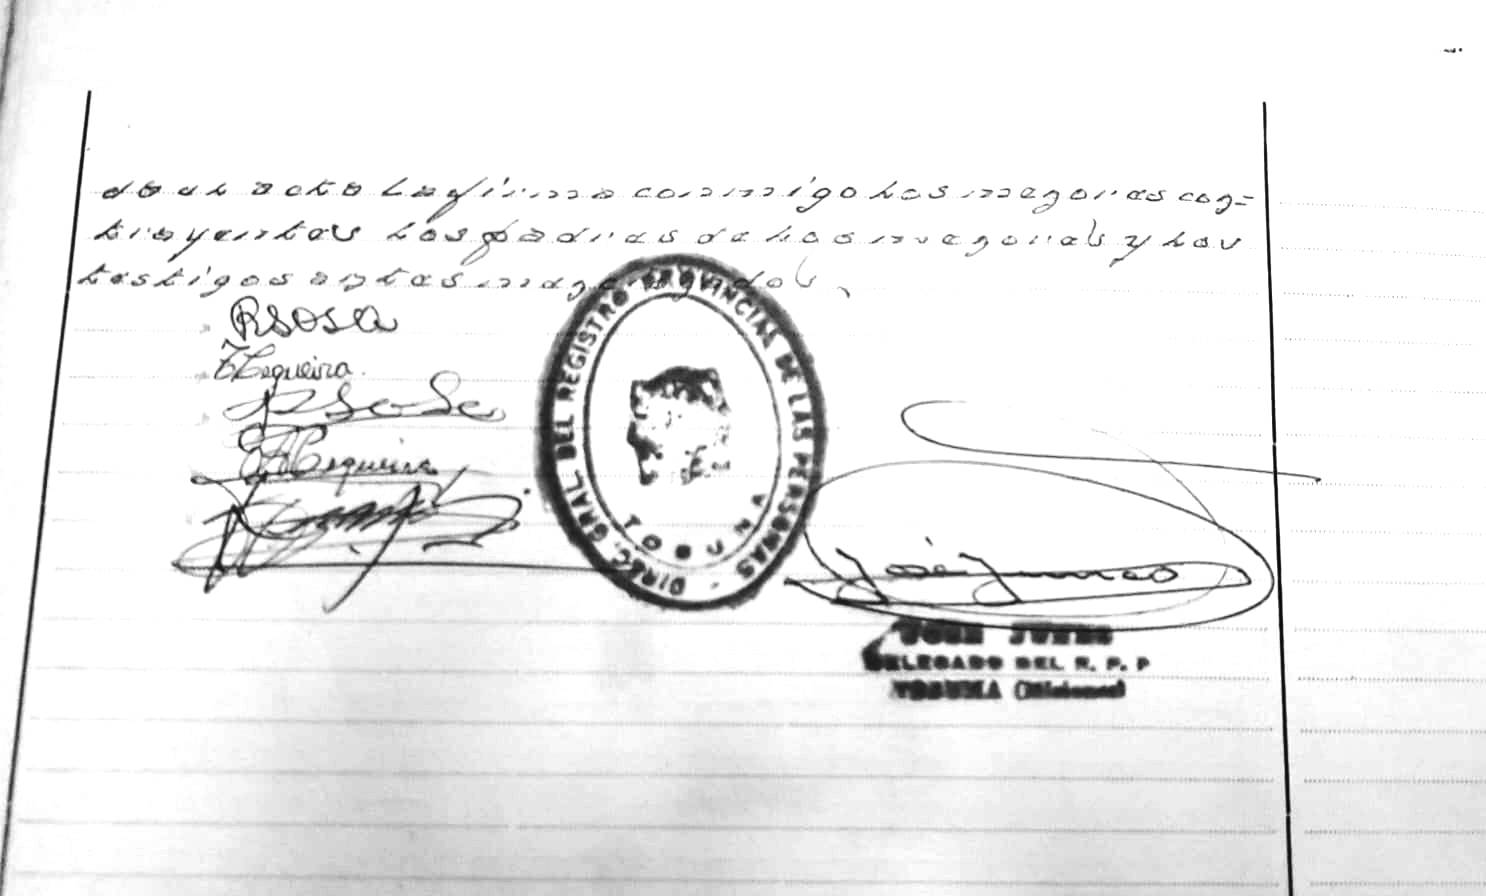 do el acto La firma conmigo Los menores con=
trayentes Los padres de Los menores y Los
testigos antes mencionados.
RSOSA
Sequeira.
Sequeira
DIREC. GRAL. DEL REGISTRO PROVINCIAL DE LAS PERSONAS
TOBUNA
José
DELEGADO DEL R. P. P
TOBUNA (Misiones)